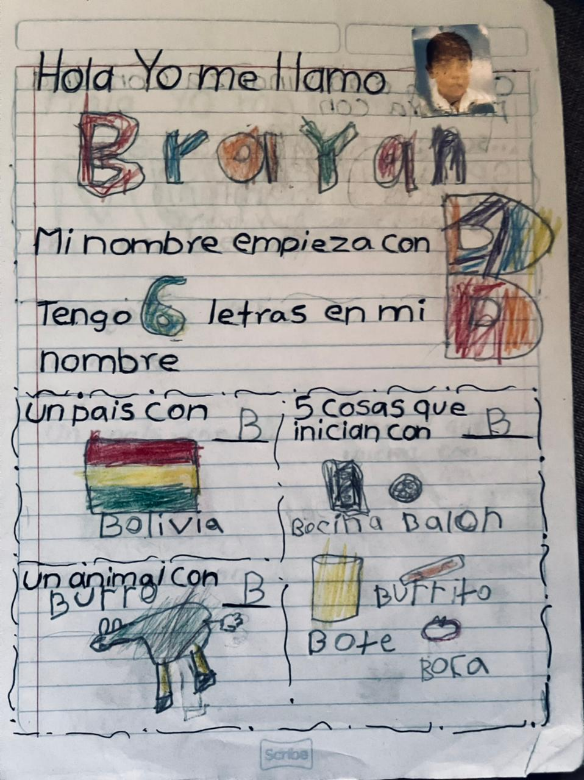 Hola Yo me llamo
Brayan
Mi nombre empieza con B
Tengo 6 letras en mi
nombre
un pais con B
Bolivia
5 cosas que
inician con B
Bocina Balon
Burrito
Bote
Boca
un animal con B
Burro
Scribe